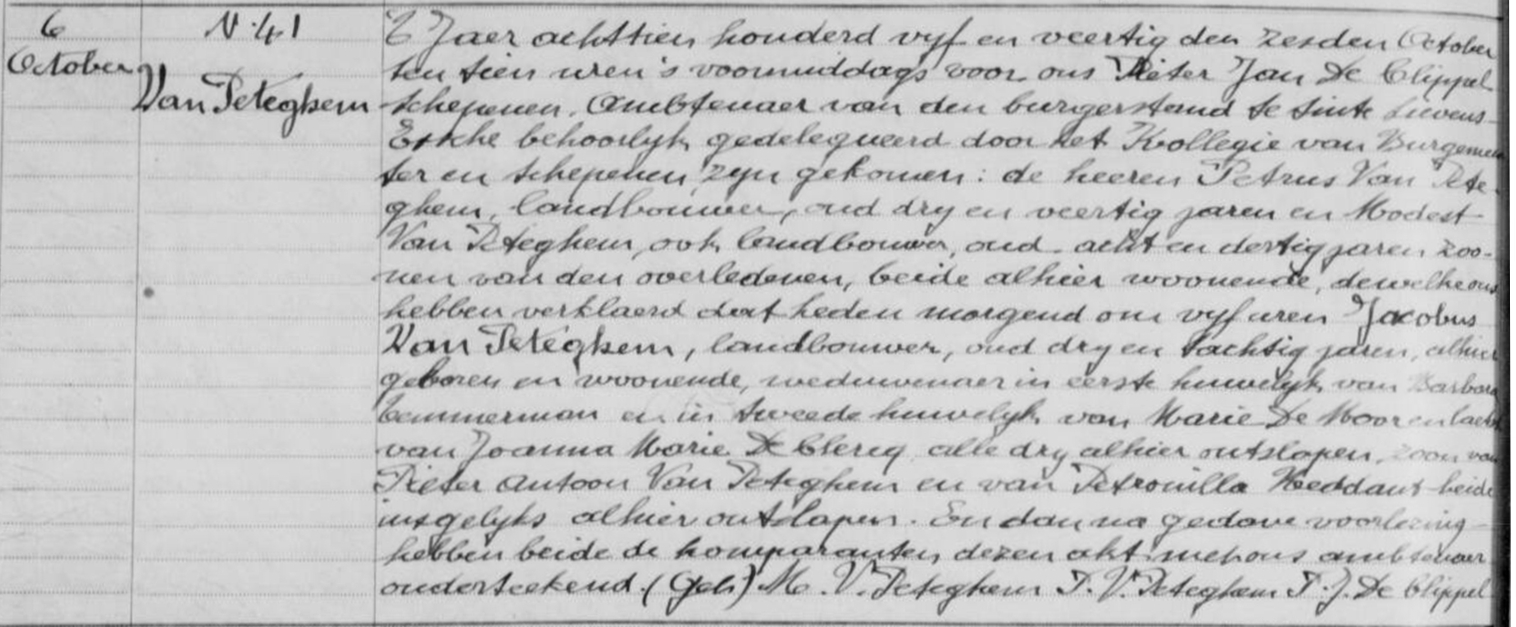 6
October
N. 41
Van Peteghem
T Jaer achttien honderd vyf en veertig den zesden October
ten tien uren 's voormiddags voor ons Pieter Jan De Clippel
schepenen, Ambtenaer van den burgerstand te Sinte Lievens
Essche behoorlyk gedelegueerd door het Kollegie van Burgemees
ter en schepenen, zyn gekomen: de heeren Petrus Van Pete-
ghem, landbouwer, oud dry en veertig jaren en Modest
Van Peteghem, ook landbouwer, oud acht en dertig jaren zoo-
nen van den overledenen, beide alhier woonende, dewelke ons
hebben verklaerd dat heden morgend om vyf uren Jacobus
Van Peteghem, landbouwer, oud dry en tachtig jaren, alhier
geboren en woonende, weduwenaer in eerste huwelyk van Barbara
Temmerman en in tweede huwelyk van Marie De Moor en laetst
van Joanna Marie De Clercq alle dry alhier ontslapen, zoon van
Pieter Antoon Van Peteghem en van Petronilla beide
insgelyks alhier ontslapen. En dan na gedane voorlezing
hebben beide de komparanten dezen akt met ons ambtenaer
onderteekend. (Get.) M. V. Peteghem P. V. Peteghem P. J. De Clippel